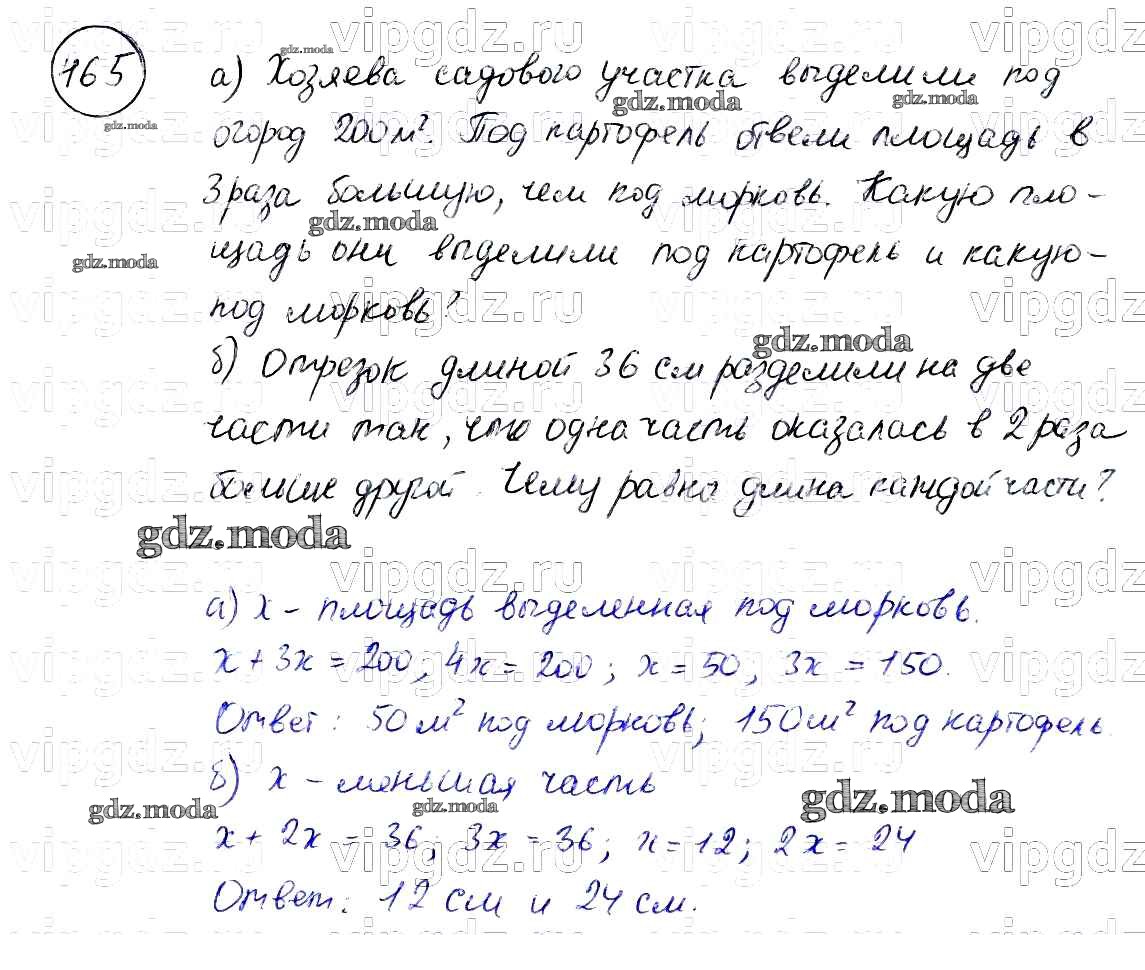 165
а) Хозяева садового участка выделили под
огород 200 м². Под картофель отвели площадь в
3 раза большую, чем под морковь. Какую пло-
щадь они выделили под картофель и какую-
под морковь?
б) Отрезок длиной 36 см разделили на две
части так, что одна часть оказалась в 2 раза
больше другой. Чему равна длина каждой части?
а) x - площадь выделенная под морковь.
x + 3x = 200; 4x = 200; x = 50; 3x = 150.
Ответ: 50 м² под морковь; 150 м² под картофель.
б) x - меньшая часть
x + 2x = 36; 3x = 36; x = 12; 2x = 24
Ответ: 12 см и 24 см.
gdz.moda
vipgdz.ru